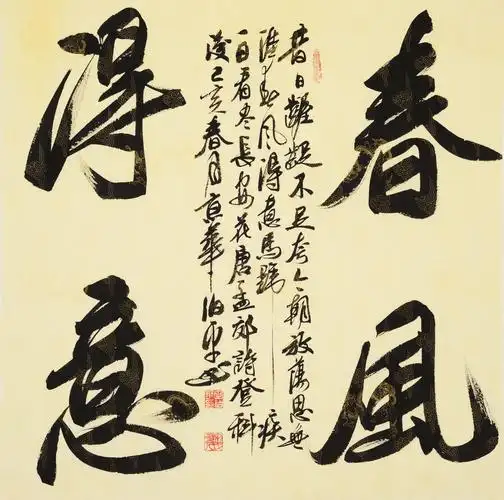 春風
得意
昔日齷齪不足夸今朝放蕩思無
涯春风得意馬蹄疾
一日看尽長安花唐孟郊詩登科
後己亥春月京華